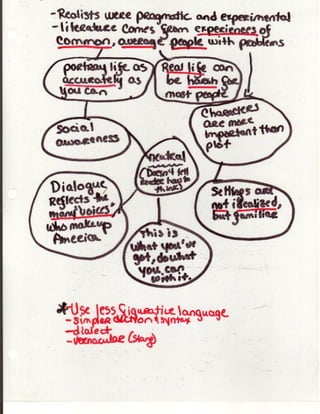 -Realists were pragmatic and experimental
-literature comes from experiences of
common, average people with problems
portray life as
accurately as
you can
Real life can
be harsh for
most people
Characters
are more
important than
plot
Social
awareness
neutral
(Doesn't tell
reader how to
think)
Dialogue
Reflects the
many "voices"
who make up
America
Settings are
not idealized,
but familiar
This is
what you've
got, do what
you can
with it.
*Use less figurative language
-simpler diction & syntax
-dialect
-vernacular (slang)